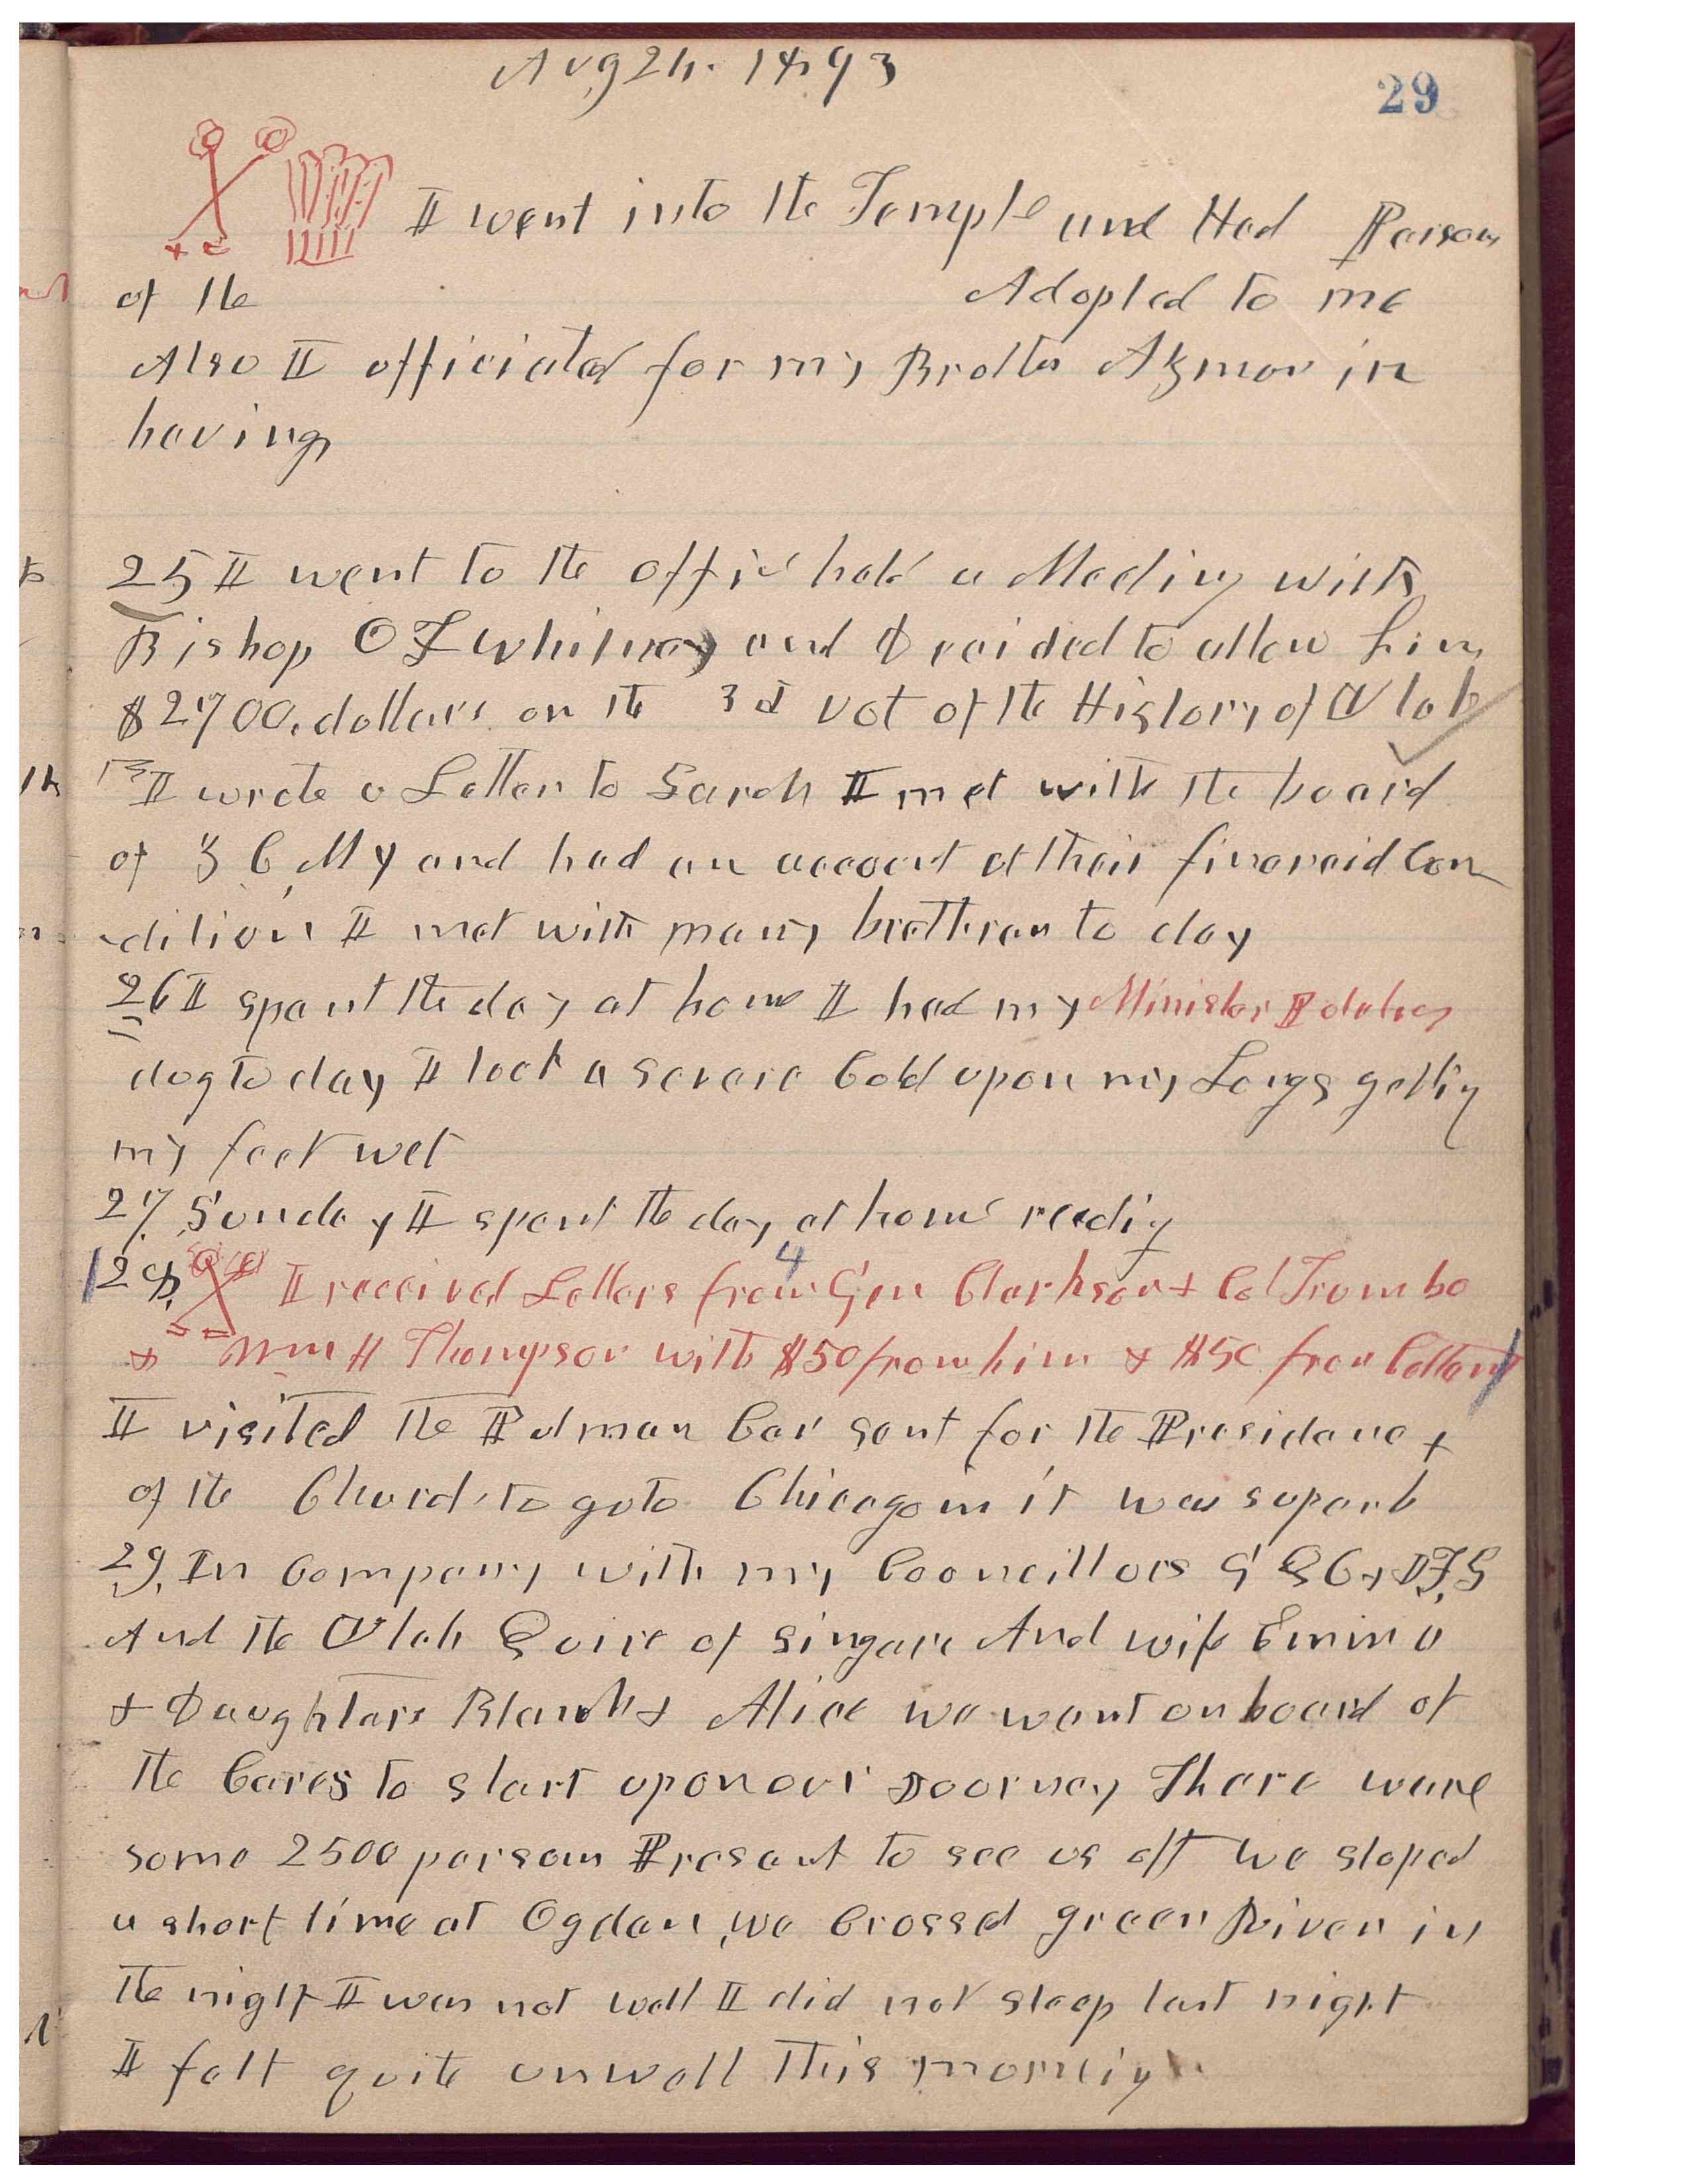 Aug 24. 1893
29
I went into the Temple and Had Persons
of the Adopted to me
Also I officiated for my Brother Azmon in
having
25 I went to the office held a Meeting with
Bishop O F Whitney and Decided to allow him
$2700, dollars on the 3d vol of the History of Utah
I wrote a Letter to Sarah I met with the board
of Z C M I and had an account of their financial Con
-dition I met with many brethren to day
26 I spent the day at home I had my
dog to day I took a severe Cold upon my Lungs getting
my feet wet
27, Sunday I spent the day at home reading
28, I received Letters from 4 Gen Clarkson & Col Trumbo
& Wm H Thompson with $50 from him & $50 from
I visited the Pulman Car sent for the Presidency
of the Church to go to Chicago in it was superb
29, In Company with my Councillors G Q C & J F S
And the Utah Quire of singers And wife Emma
& Daughters Blanch & Alice we went on board of
the Cares to start upon our Journey There were
some 2500 persons Present to see us off We stoped
a short time at Ogden, we Crossed green River in
the night I was not well I did not sleep last night
I felt quite unwell This morning